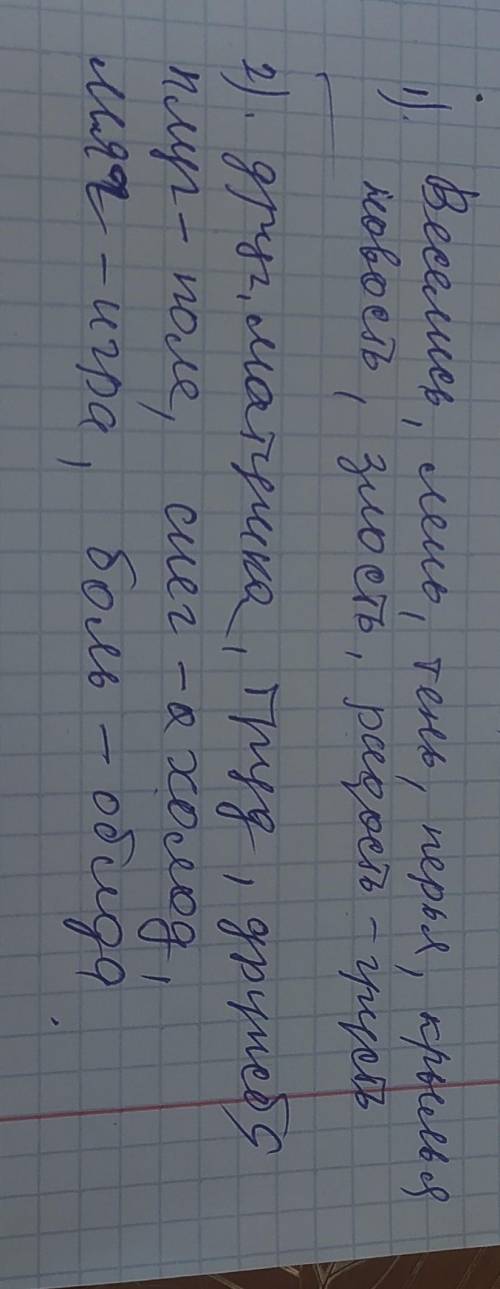 1). Веселись, лень, тень, перья, крылья
новость, злость, радость - грусть
2). друг, матушка, труд, дружба
плуг - поле, снег - холод,
мяч - игра, боль - обида